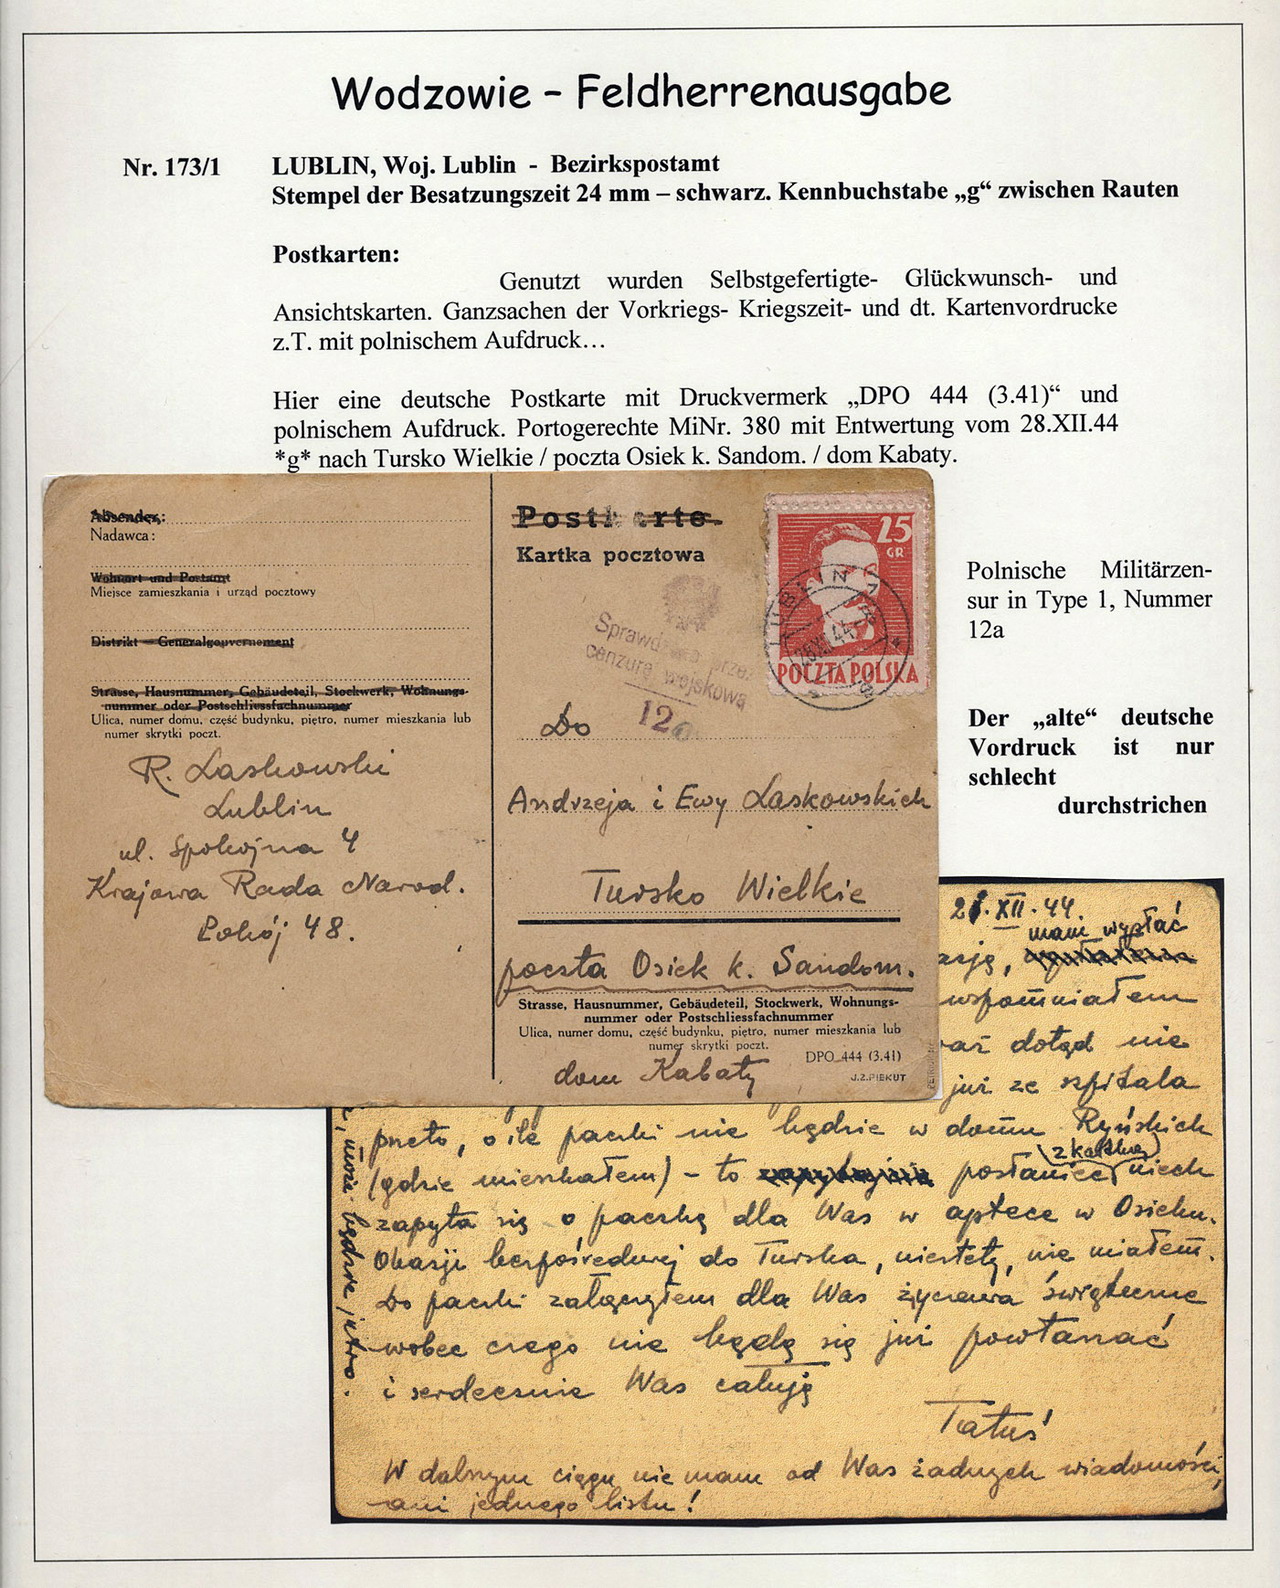 Wodzowie – Feldherrenausgabe
Nr. 173/1
LUBLIN, Woj. Lublin - Bezirkspostamt
Stempel der Besatzungszeit 24 mm – schwarz. Kennbuchstabe „g“ zwischen Rauten
Postkarten:
Genutzt wurden Selbstgefertigte- Glückwunsch- und
Ansichtskarten. Ganzsachen der Vorkriegs- Kriegszeit- und dt. Kartenvordrucke
z.T. mit polnischem Aufdruck…
Hier eine deutsche Postkarte mit Druckvermerk „DPO 444 (3.41)“ und
polnischem Aufdruck. Portogerechte MiNr. 380 mit Entwertung vom 28.XII.44
*g* nach Tursko Wielkie / poczta Osiek k. Sandom. / dom Kabaty.
Absender:
Nadawca:
Wohnort und Postamt
Miejsce zamieszkania i urząd pocztowy
Distrikt – Generalgouvernement
Strasse, Hausnummer, Gebäudeteil, Stockwerk, Wohnungs-
nummer oder Postschliessfachnummer
Ulica, numer domu, część budynku, piętro, numer mieszkania lub
numer skrytki poczt.
R. Laskowski
Lublin
ul. Spokojna 4
Krajowa Rada Narod.
Pokój 48.
Postkarte
Kartka pocztowa
25
GR
POCZTA POLSKA
LUBLIN
Sprawdzono przez
cenzurę wojskową
12a
Do
Andrzeja i Ewy Laskowskich
Tursko Wielkie
poczta Osiek k. Sandom.
Strasse, Hausnummer, Gebäudeteil, Stockwerk, Wohnungs-
nummer oder Postschliessfachnummer
Ulica, numer domu, część budynku, piętro, numer mieszkania lub
numer skrytki poczt.
DPO 444 (3.41)
J.Z.PIEKUT
dom Kabaty
Polnische Militärzen-
sur in Type 1, Nummer
12a
Der „alte“ deutsche
Vordruck ist nur
schlecht
durchstrichen
XII.44.
mam wysłać
wspomniałem
dotąd nie
już ze szpitala
przeto, o ile paczki nie będzie w domu Ryńskich
(gdzie mieszkałem) – to posłaniec niech
z kartką
zapyta się o paczkę dla Was w aptece w Osieku.
Okazji bezpośredniej do Turska, niestety, nie miałem.
Do paczki załączyłem dla Was życzenia świąteczne
wobec czego nie będę się już powtarzać
i serdecznie Was całuję
Tatuś
W dalszym ciągu nie mam od Was żadnych wiadomości,
ani jednego listu!
może będzie jutro.